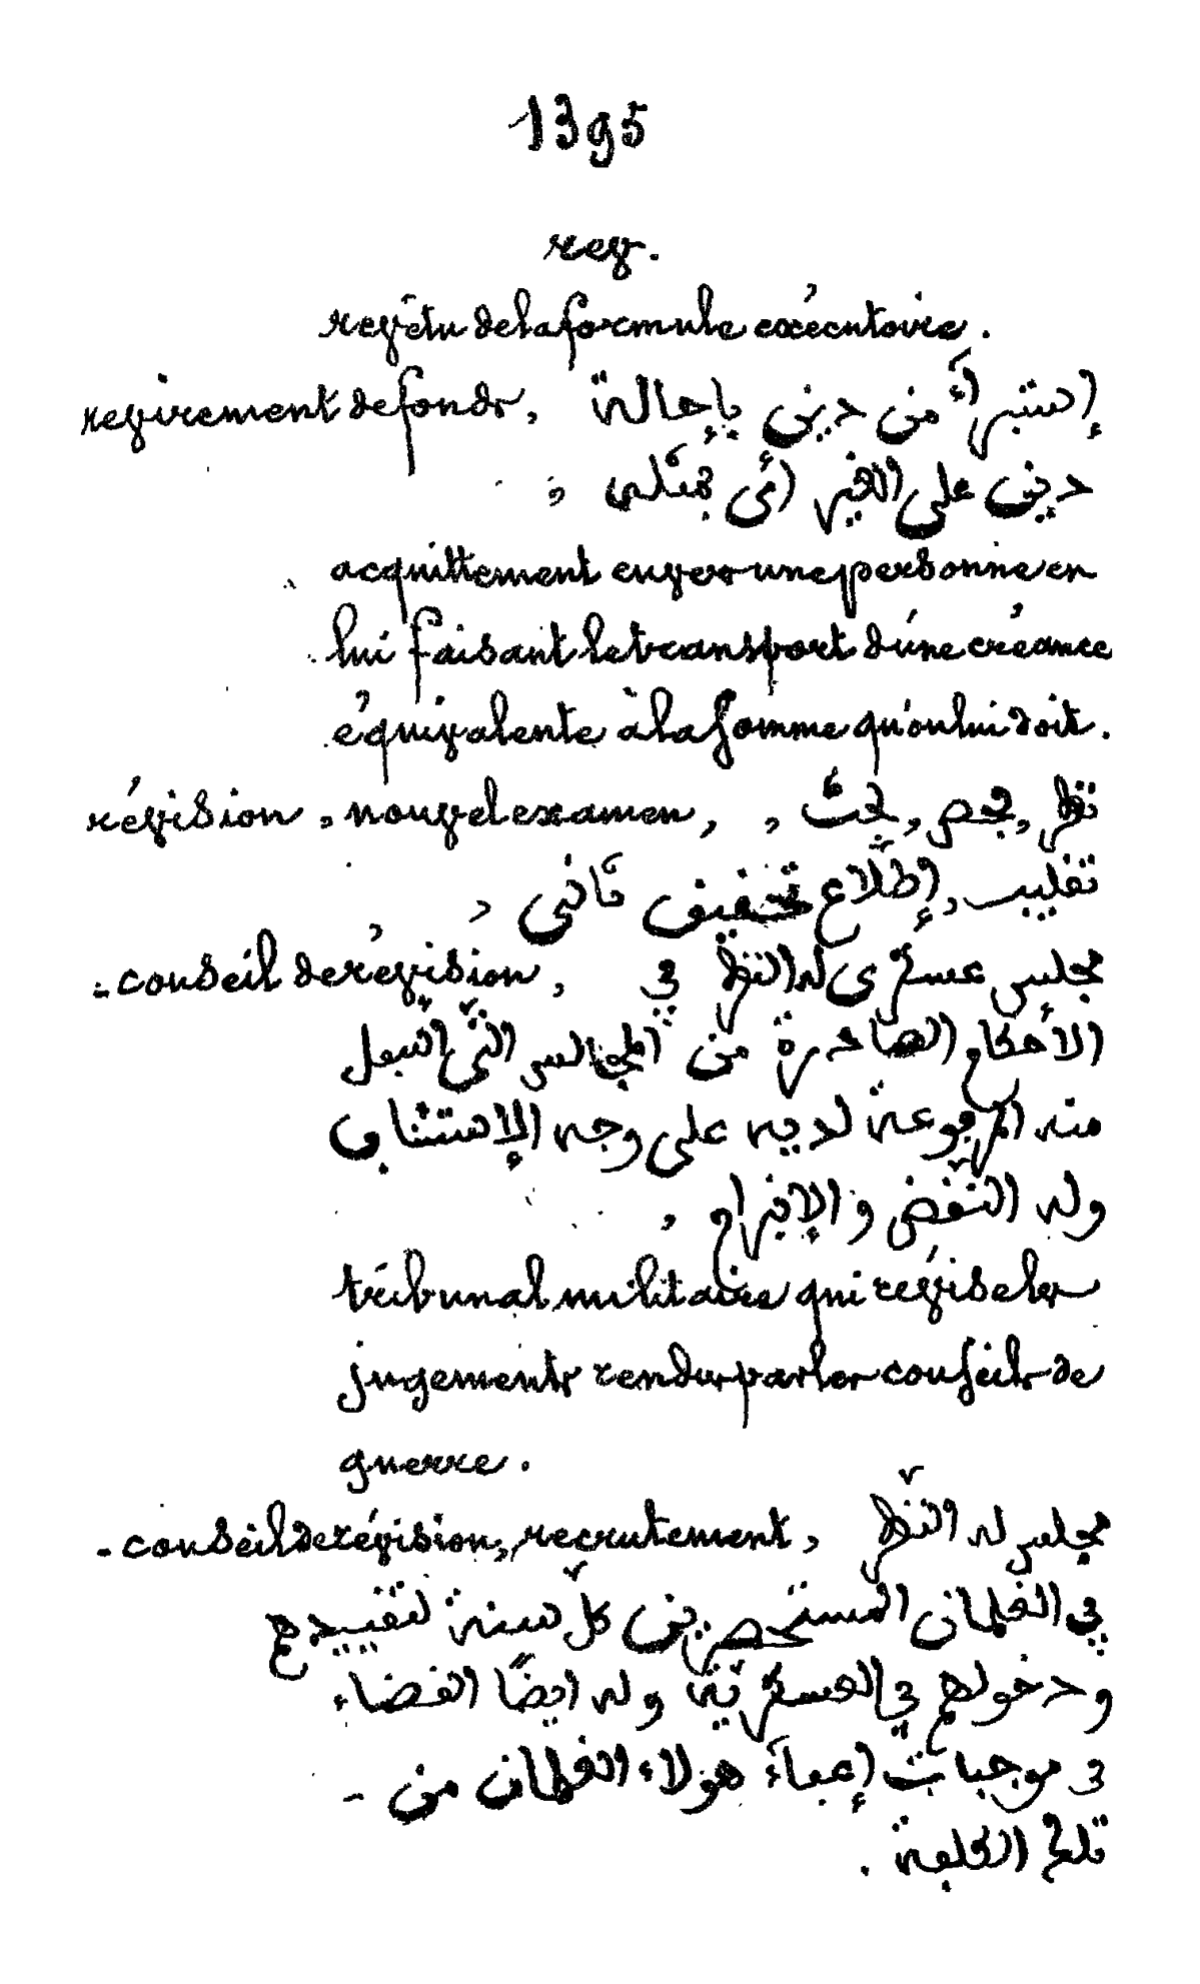 1395
rev.
revêtu de la formule exécutoire.
revirement de fonds, إستبرأء من دين بإحالة
دين على الغير أي بمثله ,
acquittement envers une personne en
lui faisant le transport d'une créance
équivalente à la somme qu'on lui doit.
révision, nouvel examen, نظر, فحص, بحث ,
تقليب, إطّلاع تحقيق ثاني ,
- conseil de révision, مجلس عسكري له النظر في
الأحكام الصادرة من المجالس التّي
منه المرفوعة لديه على وجه الإستئناف
وله النّقض والإبرام ,
tribunal militaire qui révise les
jugements rendus par les conseils de
guerre.
- conseil de révision, recrutement, مجلس له النّظر
في الغلمان المستحضرين كلّ سنة لتقييدهم
ودخولهم في العسكريّة وله ايضًا القضاء
في موجبات إعفاء هولاء الغلمان من -
تلك الكلفة.